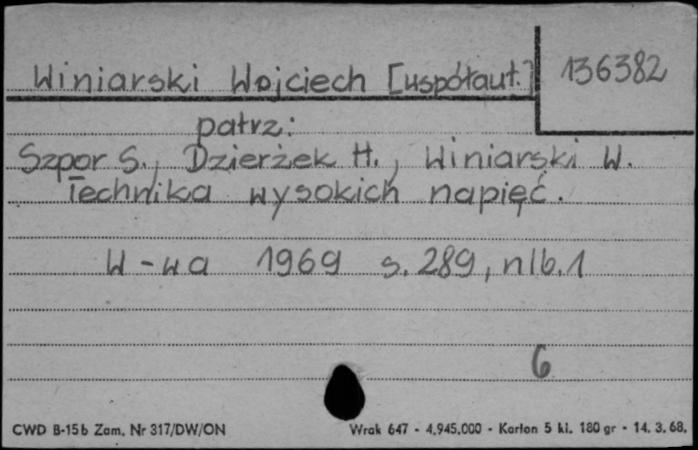 Winiarski Wojciech [współaut.] 136382
patrz:
Szpor S., Dzierżek H., Winiarski W.
Technika wysokich napięć.
W-wa 1969 s. 289, nlb. 1
6
CWD B-15b Zam. Nr 317/DW/ON Wrak 647 - 4.945.000 - Karton 5 kl. 180 gr - 14. 3. 68.